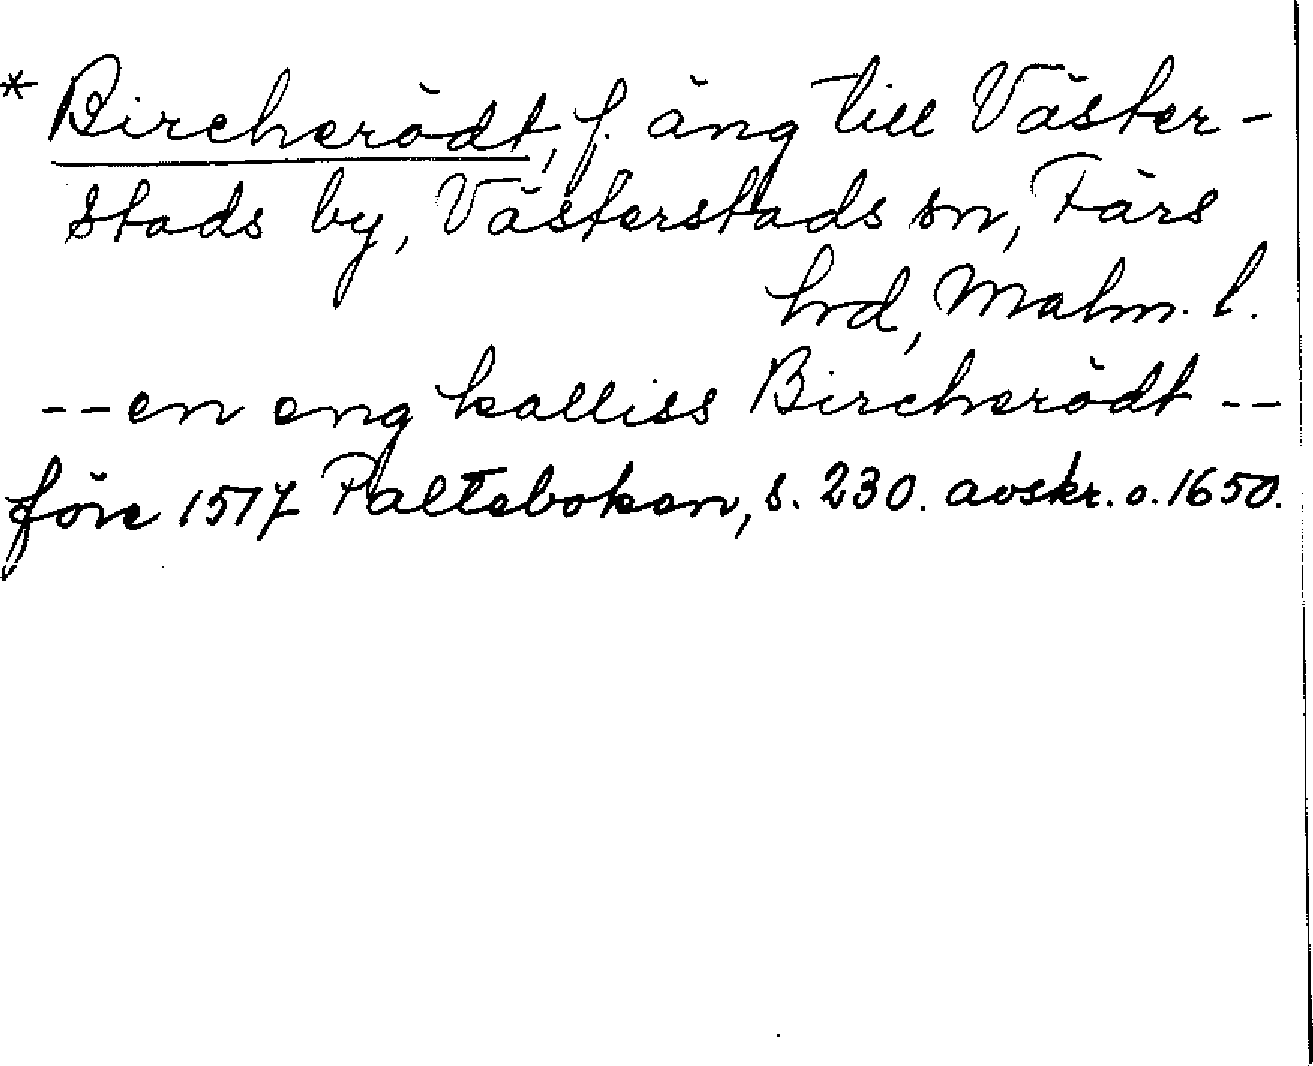 * Bircherödt, f. äng till Väster-
stads by, Västerstads sn, Färs
hrd, Malm. l.
--en eng kalliss Bircherödt --
före 1517 Palteboken, s. 230. avskr. o. 1650.